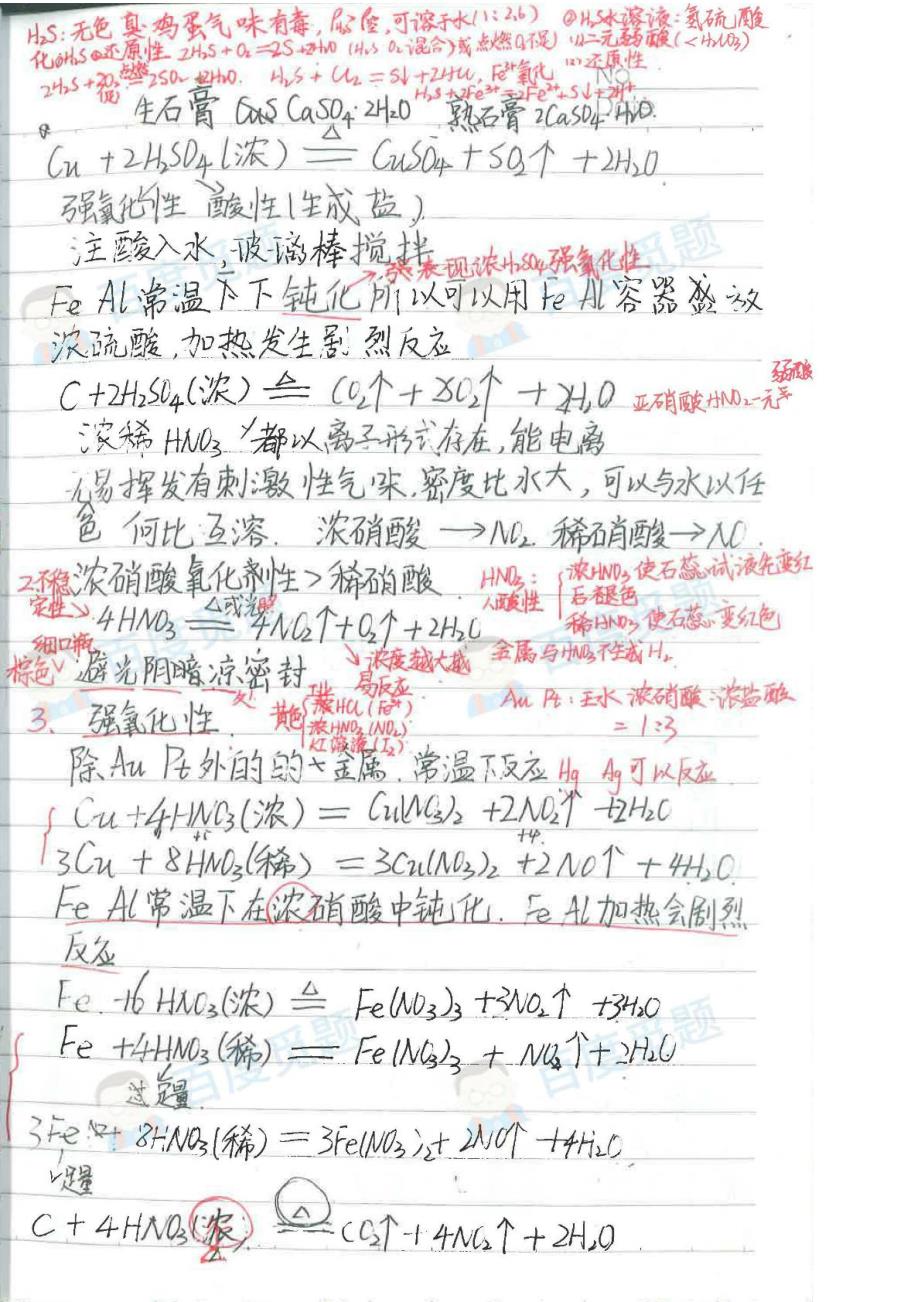 H₂S：无色 臭鸡蛋气味有毒，可溶于水(1:2.6) ②H₂S水溶液：氢硫酸
化①H₂S 还原性 2H₂S+O₂=2S+2H₂O (H₂S O₂混合)或点燃O₂不足) (1)二元弱酸(<H₂CO₃)
2H₂S+3O₂ 点燃 = 2SO₂+2H₂O. H₂S+Cl₂=S↓+2HCl, Fe³⁺氧化 (2)还原性
H₂S+2Fe³⁺=2Fe²⁺+S↓+2H⁺
No
生石膏 CaSO₄·2H₂O 熟石膏 2CaSO₄·H₂O.
Cu+2H₂SO₄(浓) ≜ CuSO₄+SO₂↑+2H₂O
强氧化性 酸性(生成盐)
注酸入水，玻璃棒搅拌
→表现浓H₂SO₄强氧化性
Fe Al常温下下钝化所以可以用Fe Al容器盛放
浓硫酸，加热发生剧烈反应
C+2H₂SO₄(浓) ≜ CO₂↑+2SO₂↑+2H₂O 亚硝酸HNO₂一元弱酸
浓稀HNO₃都以离子形式存在，能电离
无易挥发有刺激性气味，密度比水大，可以与水以任
色 何比互溶. 浓硝酸→NO₂. 稀硝酸→NO.
2.不稳定性 浓硝酸氧化剂性>稀硝酸
HNO₃：酸性
浓HNO₃使石蕊试液先变红
后褪色
稀HNO₃使石蕊变红色
4HNO₃ △或光照 = 4NO₂↑+O₂↑+2H₂O
金属与HNO₃不生成H₂.
↘浓度越大越
易反应
细口瓶
棕色 避光阴暗凉密封
处
黄色
浓HCl(Fe³⁺)
浓HNO₃(NO₂)
溶液(I₂)
Au Pt：王水 浓硝酸：浓盐酸
=1:3
3. 强氧化性
除Au Pt外的的金属.常温下反应 Hg Ag可以反应
Cu+4HNO₃(浓)=Cu(NO₃)₂+2NO₂↑+2H₂O
+5 +4
3Cu+8HNO₃(稀)=3Cu(NO₃)₂+2NO↑+4H₂O
Fe Al常温下在浓硝酸中钝化. Fe Al加热会剧烈
反应
Fe+6HNO₃(浓) ≜ Fe(NO₃)₃+3NO₂↑+3H₂O
Fe+4HNO₃(稀)=Fe(NO₃)₃+NO₂↑+2H₂O
过量.
3Fe+8HNO₃(稀)=3Fe(NO₃)₂+2NO↑+4H₂O
C+4HNO₃(浓) ≜ CO₂↑+4NO₂↑+2H₂O
百度觅题
百度觅题
百度觅题
百度觅题
百度觅题
百度觅题